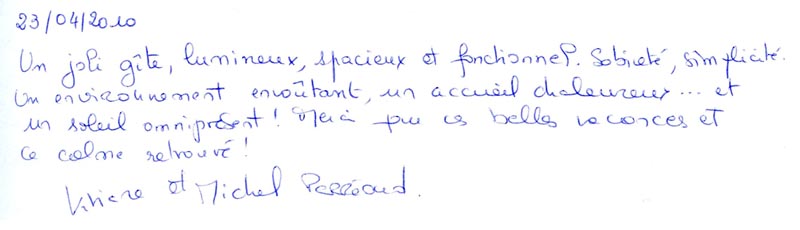 23/04/2010
Un joli gîte, lumineux, spacieux et fonctionnel. Sobrieté, simplicité.
Un environnement envoûtant, un accueil chaleureux... et
un soleil omniprésent ! Merci pour ces belles vacances et
ce calme retrouvé !
et Michel